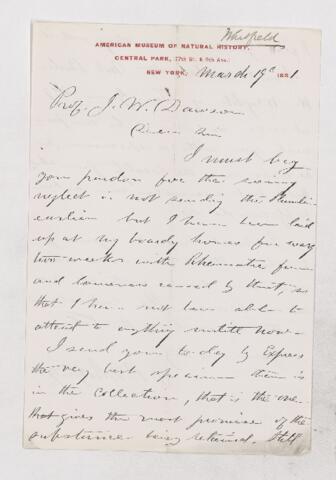 Whitfield
AMERICAN MUSEUM OF NATURAL HISTORY,
CENTRAL PARK, (77th St. & 8th Ave.)
NEW YORK, March 19th 1881
Prof. J. W. Dawson
Dear Sir
I must beg
your pardon for the seeming
neglect in not sending the
earlier but I have been laid
up at my boarding house for very
two weeks with Rheumatic fever
and lameness caused by that, so
that I have not been able to
attend to anything until now.
I send you to day by Express
the very best specimen there is
in the collection, that is the one
that gives the most promise of the
substance being retained. Still